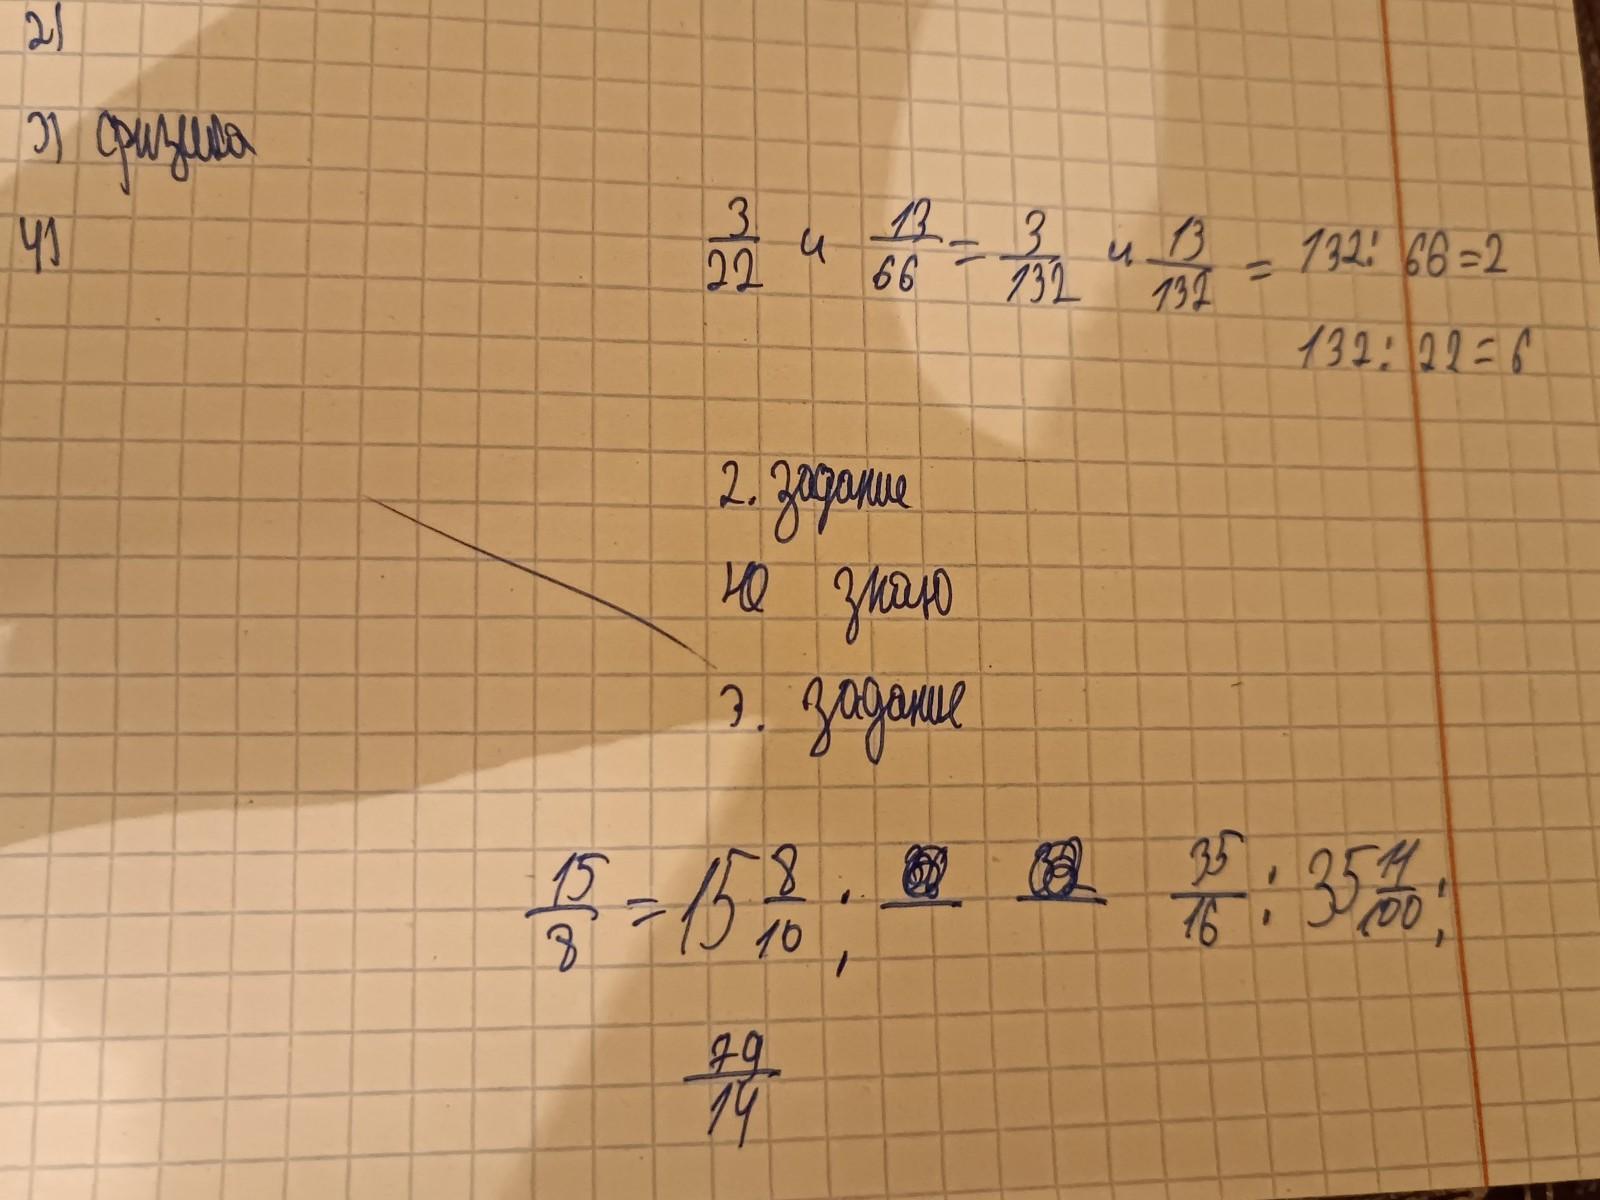 2)
3) физика
4)
3/22 и 13/66 = 3/132 и 13/132 = 132 : 66 = 2
132 : 22 = 6
2. задание
Не знаю
3. задание
15/8 = 15 8/10 ; 35/16 : 35 11/100 ;
79/14